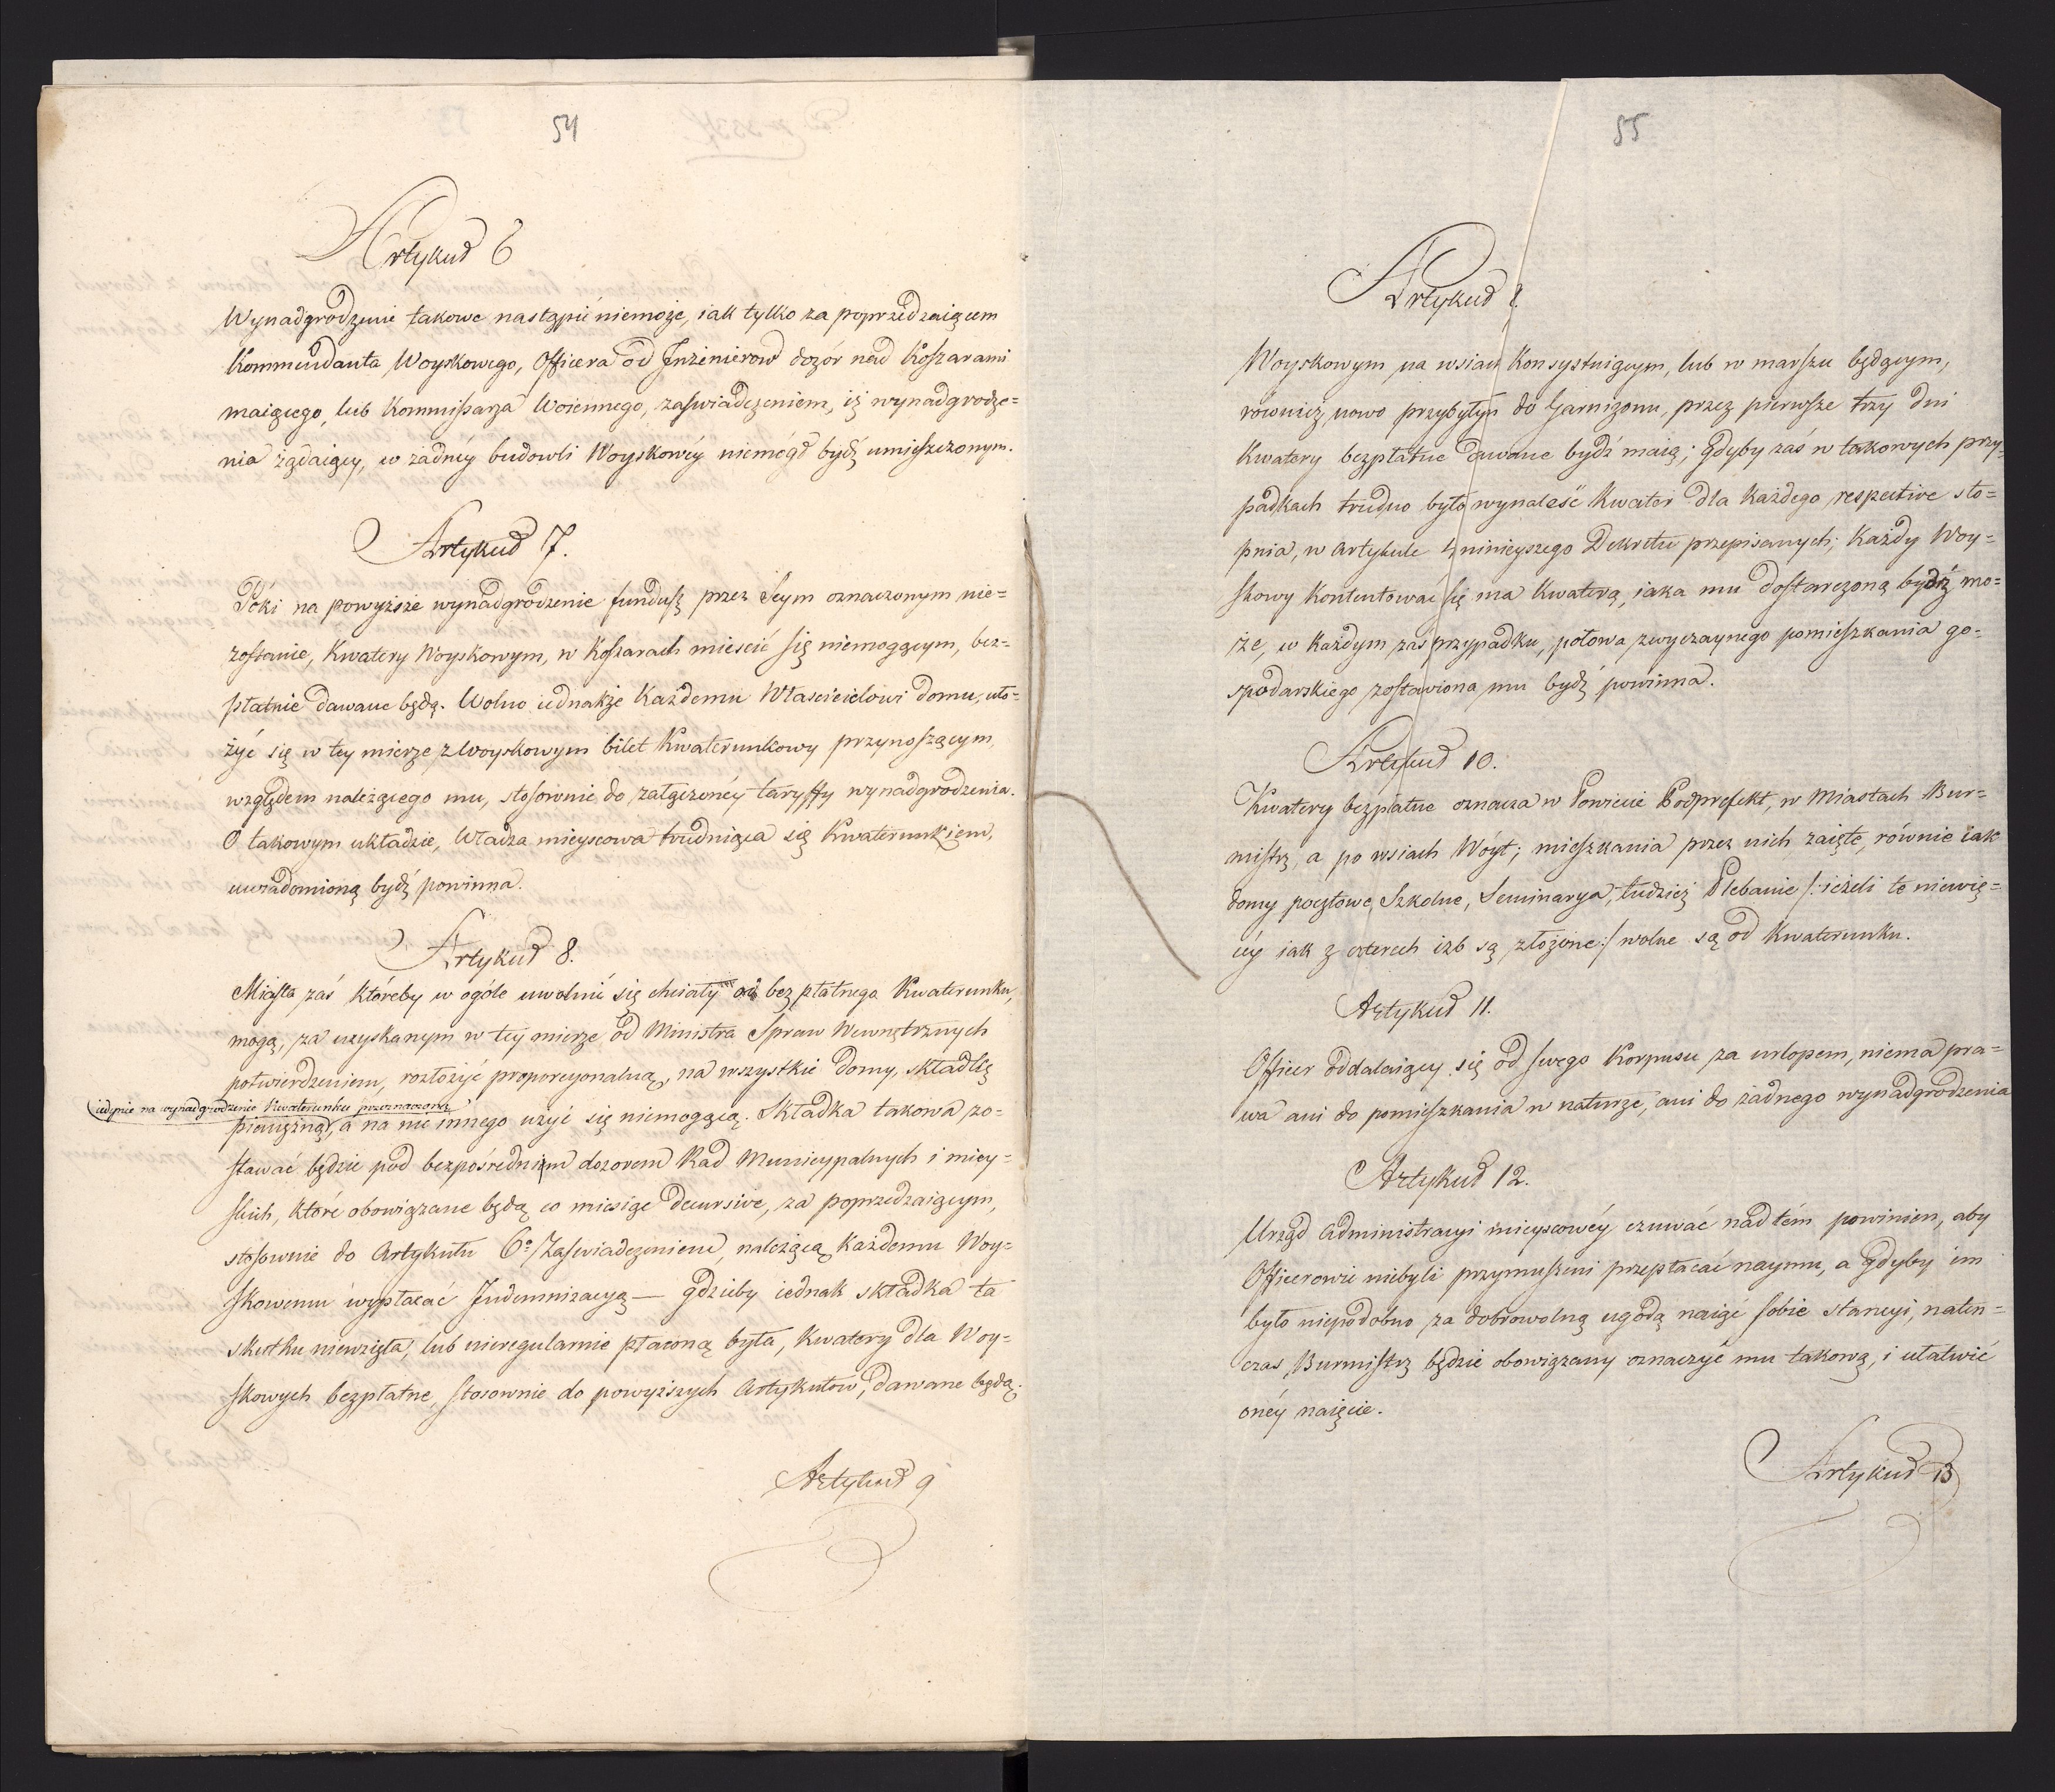 54
Artykuł 6
Wynadgrodzenie takowe nastąpić niemoże, iak tylko za poprzedzaiącem
Kommendanta Woyskowego, Officera od Inżenierow dozór nad Koszarami
maiącego, lub Kommissarza Woiennego, zaświadczeniem, iż wynadgrodze=
nia żądaiący, w żadnéy budowli Woyskowéy niemógł bydź umieszczonym.
Artykuł 7.
Póki na powyższe wynadgrodzenie fundusz przez Seym oznaczonym nie=
zostanie, Kwatery Woyskowym, w Koszarach mieścić się niemogącym, bez=
płatnie dawane będą. Wolno iednakże Każdemu Właścicielowi domu, uło=
żyć się w tey mierze z Woyskowym bilet Kwaterunkowy przynoszącym,
względem należącego mu, stosownie do załączonéy taryffy wynadgrodzenia.
O takowym układzie, Władza mieyscowa trudniąca się Kwaterunkiem,
uwiadomioną bydź powinna.
Artykuł 8.
Miasta zaś któreby w ogóle uwolnić się chciały od bezpłatnego Kwaterunku,
mogą, za uzyskanym w téy mierze od Ministra Spraw Wewnętrznych
potwierdzeniem, rozłożyć proporcyonalną, na wszystkie domy, składkę
iedynie na wynadgrodzenie Kwaterunku przeznaczoną
pieniężną, a na nic innego użyć się niemogącą. Składka takowa zo=
stawać będzie pod bezpośrednim dozorem Rad Municypalnych i miey=
skich, które obowiązane będą co miesiąc decursive, za poprzedzaiącym,
stosownie do Artykułu 6º Zaświadczeniem, należącą Każdemu Woy=
skowemu wypłacać Indemnizacyą — gdzieby iednak składka ta
skutku niewzięła, lub nieregularnie płaconą była, Kwatery dla Woy=
skowych bezpłatne, stosownie do powyższych Artykułów, dawane będą.
Artykuł 9
55
Artykuł
Woyskowym na wsiach Konsystuiącym, lub w marszu będącym,
również nowo przybyłym do Garnizonu, przez pierwsze trzy dni
Kwatery bezpłatne dawane bydź maią; Gdyby zaś w takowych przy=
padkach trudno było wynaleść Kwater dla Każdego respective sto=
pnia, w Artykule 4 ninieyszego Dekretu przepisanych, Każdy Woy=
skowy Kontentować się ma Kwaterą, iaka mu dostarczoną bydź mo=
że, w Każdym zaś przypadku, połowa zwyczaynego pomieszkania go=
spodarskiego zostawiona mu bydź powinna.
Artykuł 10.
Kwatery bezpłatne oznacza w Powiecie Podprefekt, w Miastach Bur=
mistrz, a po wsiach Wóyt; mieszkania przez nich zaięte, równie iak
domy pocztowe, Szkolne, Seminarya, tudzież Plebanie /: ieżeli te niewię=
céy iak z czterech izb są złożone :/ wolne są od Kwaterunku.
Artykuł 11.
Officer oddalaiący się od swego Korpusu za urlopem, niema pra=
wa ani do pomieszkania w naturze, ani do żadnego wynadgrodzenia
Artykuł 12.
Urząd Administracyi mieyscowéy czuwać nad tém powinien, aby
Officerowie niebyli przymuszeni przepłacać naymu, a Gdyby im
było niepodobno za dobrowolną ugodą naiąć sobie stancyi, naten=
czas, Burmistrz będzie obowiązany oznaczyć mu takową, i ułatwić
onéy naięcie.
Artykuł 13